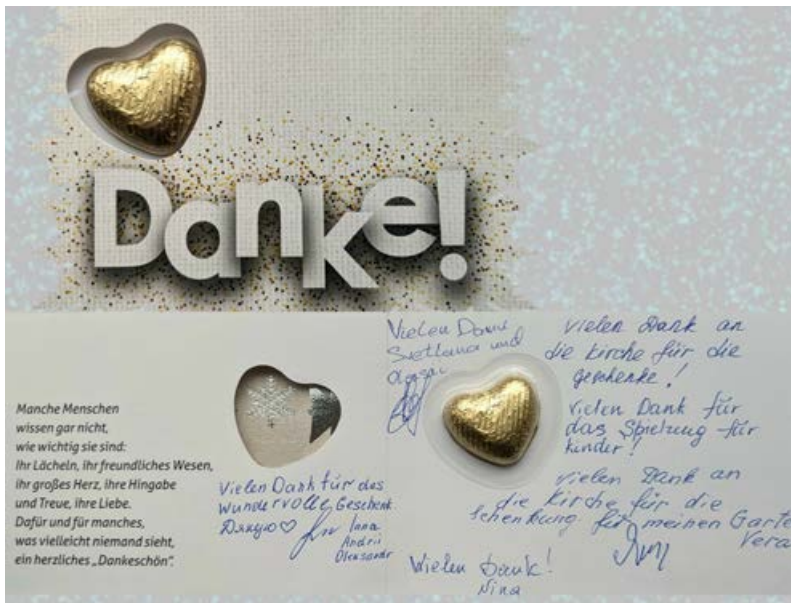 Danke!
Manche Menschen
wissen gar nicht,
wie wichtig sie sind:
Ihr Lächeln, ihr freundliches Wesen,
ihr großes Herz, ihre Hingabe
und Treue, ihre Liebe.
Dafür und für manches,
was vielleicht niemand sieht,
ein herzliches „Dankeschön“.
Vielen Dank für das
wundervolle Geschenk
Дякую♡
Inna
Andrii
Oleksandr
Vielen Dank
Svetlana und
Vielen Dank an
die kirche für die
geschenke!
Vielen Dank für
das Spielzeug für
kinder!
Vielen Dank an
die kirche für die
schenkung für meinen Garte
Vera
Vielen Dank!
Nina